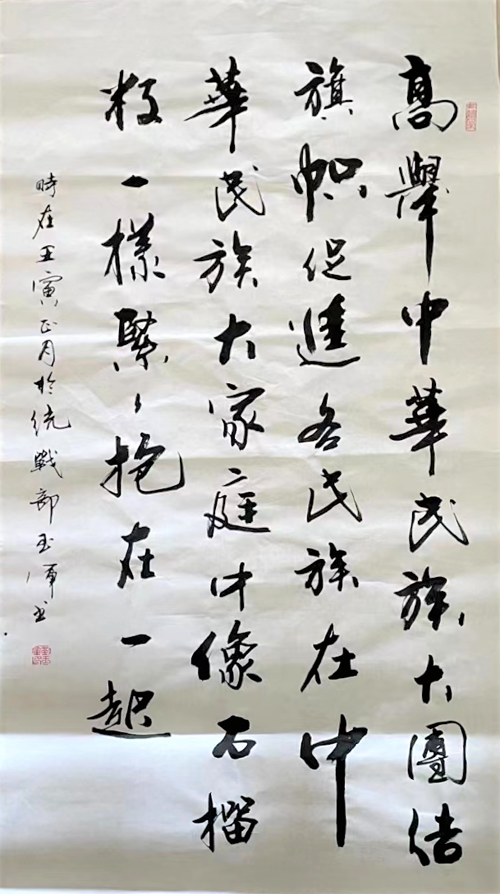 高舉中華民族大團结
旗帜促進各民族在中
華民族大家庭中像石榴
籽一樣緊々抱在一起
時在壬寅正月於统戰部玉軍书